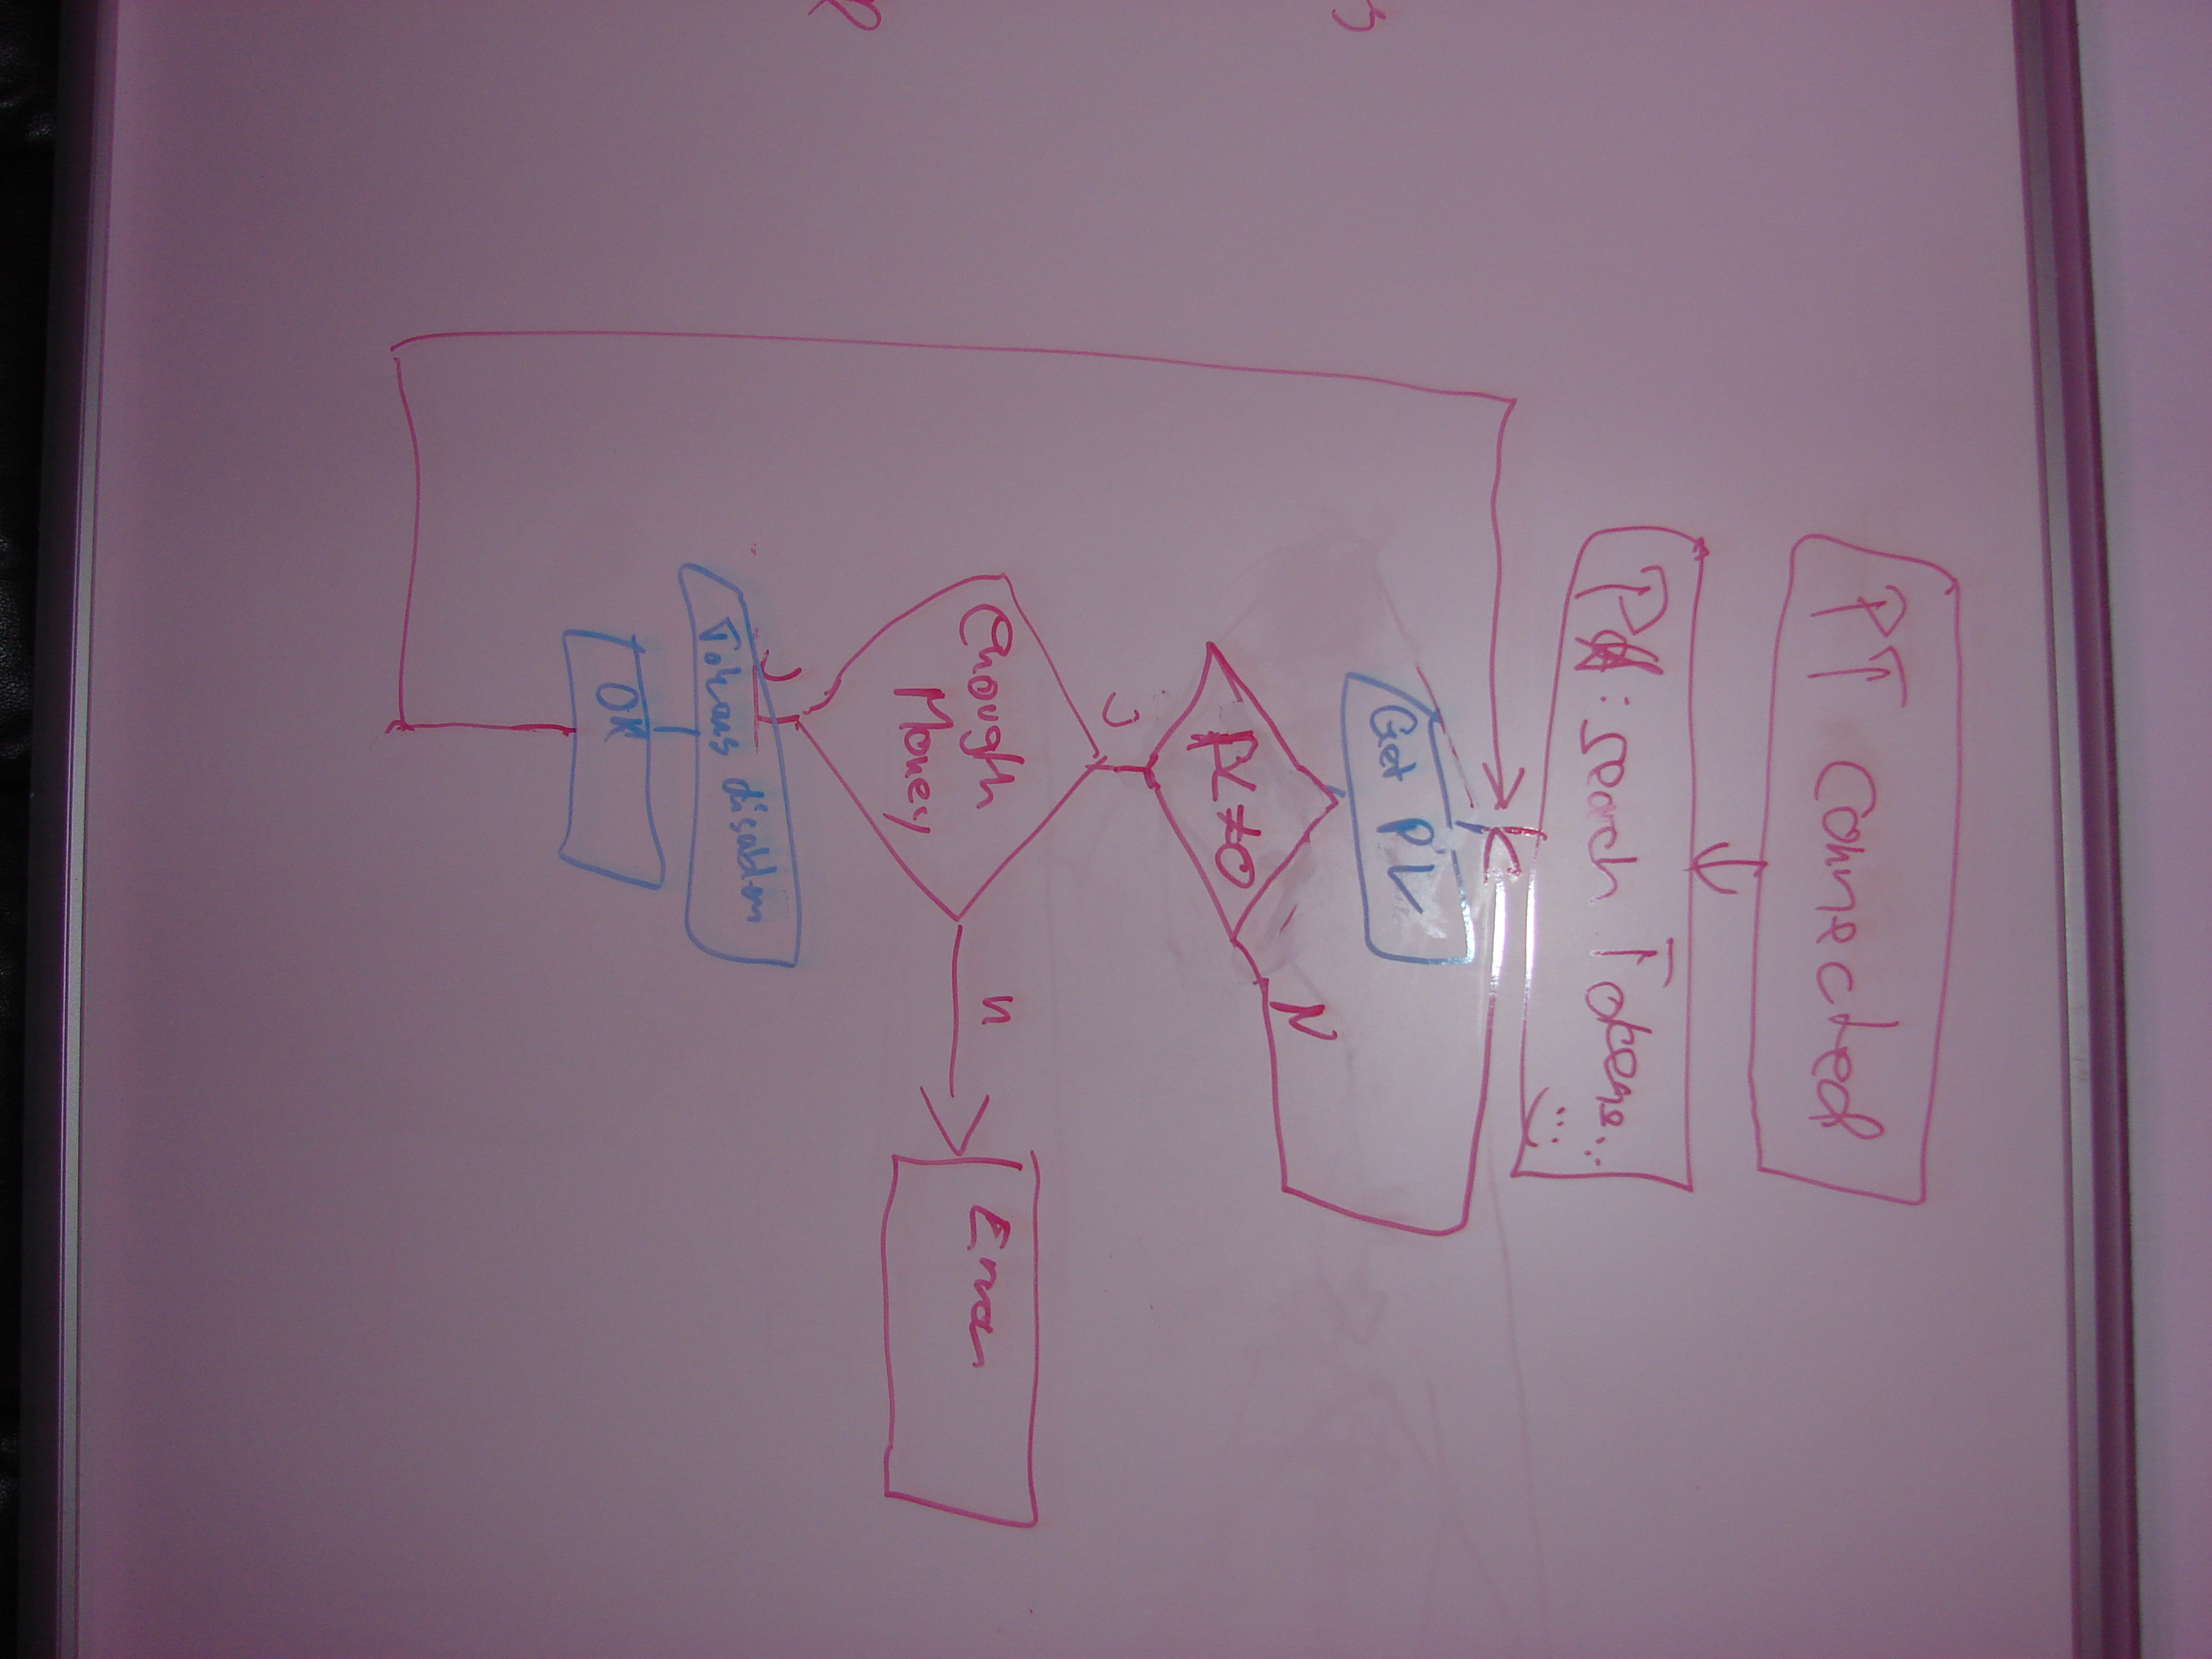 PT Connected
PT: search Tokens...
Get PL
N
PL≠0
J
Enough
Money
n
Error
J
Tokens disablen
OK